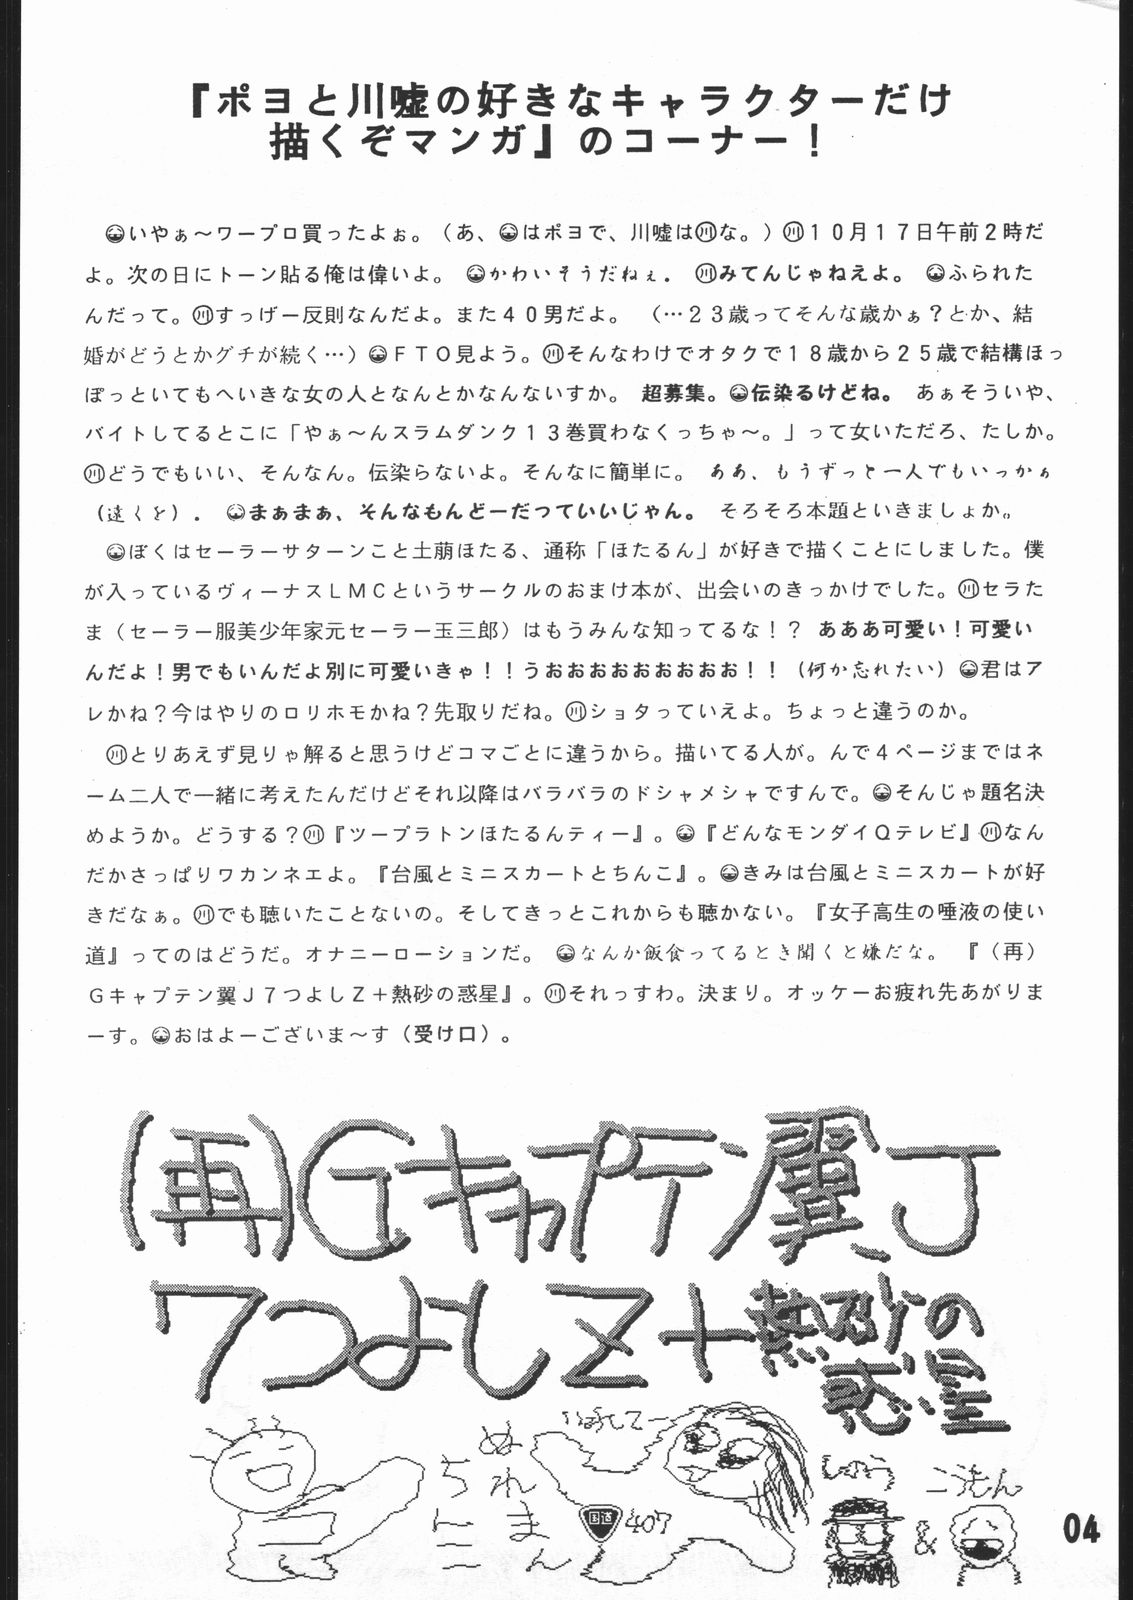 『ポヨと川嘘の好きなキャラクターだけ
描くぞマンガ』のコーナー！
いやぁ～ワープロ買ったよぉ。（あ、はポヨで、川嘘は㋕な。）１０月１７日午前２時だ
よ。次の日にトーン貼る俺は偉いよ。かわいそうだねぇ．川みてんじゃねえよ。ふられた
んだって。川すっげー反則なんだよ。また４０男だよ。（…２３歳ってそんな歳かぁ？とか、結
婚がどうとかグチが続く…）ＦＴＯ見よう。川そんなわけでオタクで１８歳から２５歳で結構ほっ
ぽっといてもへいきな女の人となんとかなんないすか。超募集。伝染るけどね。あぁそういや、
バイトしてるとこに「やぁ～んスラムダンク１３巻買わなくっちゃ～。」って女いただろ、たしか。
川どうでもいい、そんなん。伝染らないよ。そんなに簡単に。ああ、もうずっと一人でもいっかぁ
（遠くを）．まぁまぁ、そんなもんどーだっていいじゃん。そろそろ本題といきましょか。
ぼくはセーラーサターンこと土萠ほたる、通称「ほたるん」が好きで描くことにしました。僕
が入っているヴィーナスＬＭＣというサークルのおまけ本が、出会いのきっかけでした。川セラた
ま（セーラー服美少年家元セーラー玉三郎）はもうみんな知ってるな！？あああ可愛い！可愛い
んだよ！男でもいんだよ別に可愛いきゃ！！うおおおおおおおおお！！（何か忘れたい）君はア
レかね？今はやりのロリホモかね？先取りだね。川ショタっていえよ。ちょっと違うのか。
川とりあえず見りゃ解ると思うけどコマごとに違うから。描いてる人が。んで４ページまではネ
ーム二人で一緒に考えたんだけどそれ以降はバラバラのドシャメシャですんで。そんじゃ題名決
めようか。どうする？川『ツープラトンほたるんティー』。『どんなモンダイＱテレビ』川なん
だかさっぱりワカンネエよ。『台風とミニスカートとちんこ』。きみは台風とミニスカートが好
きだなぁ。川でも聴いたことないの。そしてきっとこれからも聴かない。『女子高生の唾液の使い
道』ってのはどうだ。オナニーローションだ。なんか飯食ってるとき聞くと嫌だな。『（再）
Ｇキャプテン翼Ｊ７つよしＺ＋熱砂の惑星』。川それっすわ。決まり。オッケーお疲れ先あがりま
ーす。おはよーございま～す（受け口）。
(再)Gキャプテン翼J
7つよしZ+熱砂の
惑星
ちんこ
ぬれまん
国道
407
しゅう
&
こうもん
04